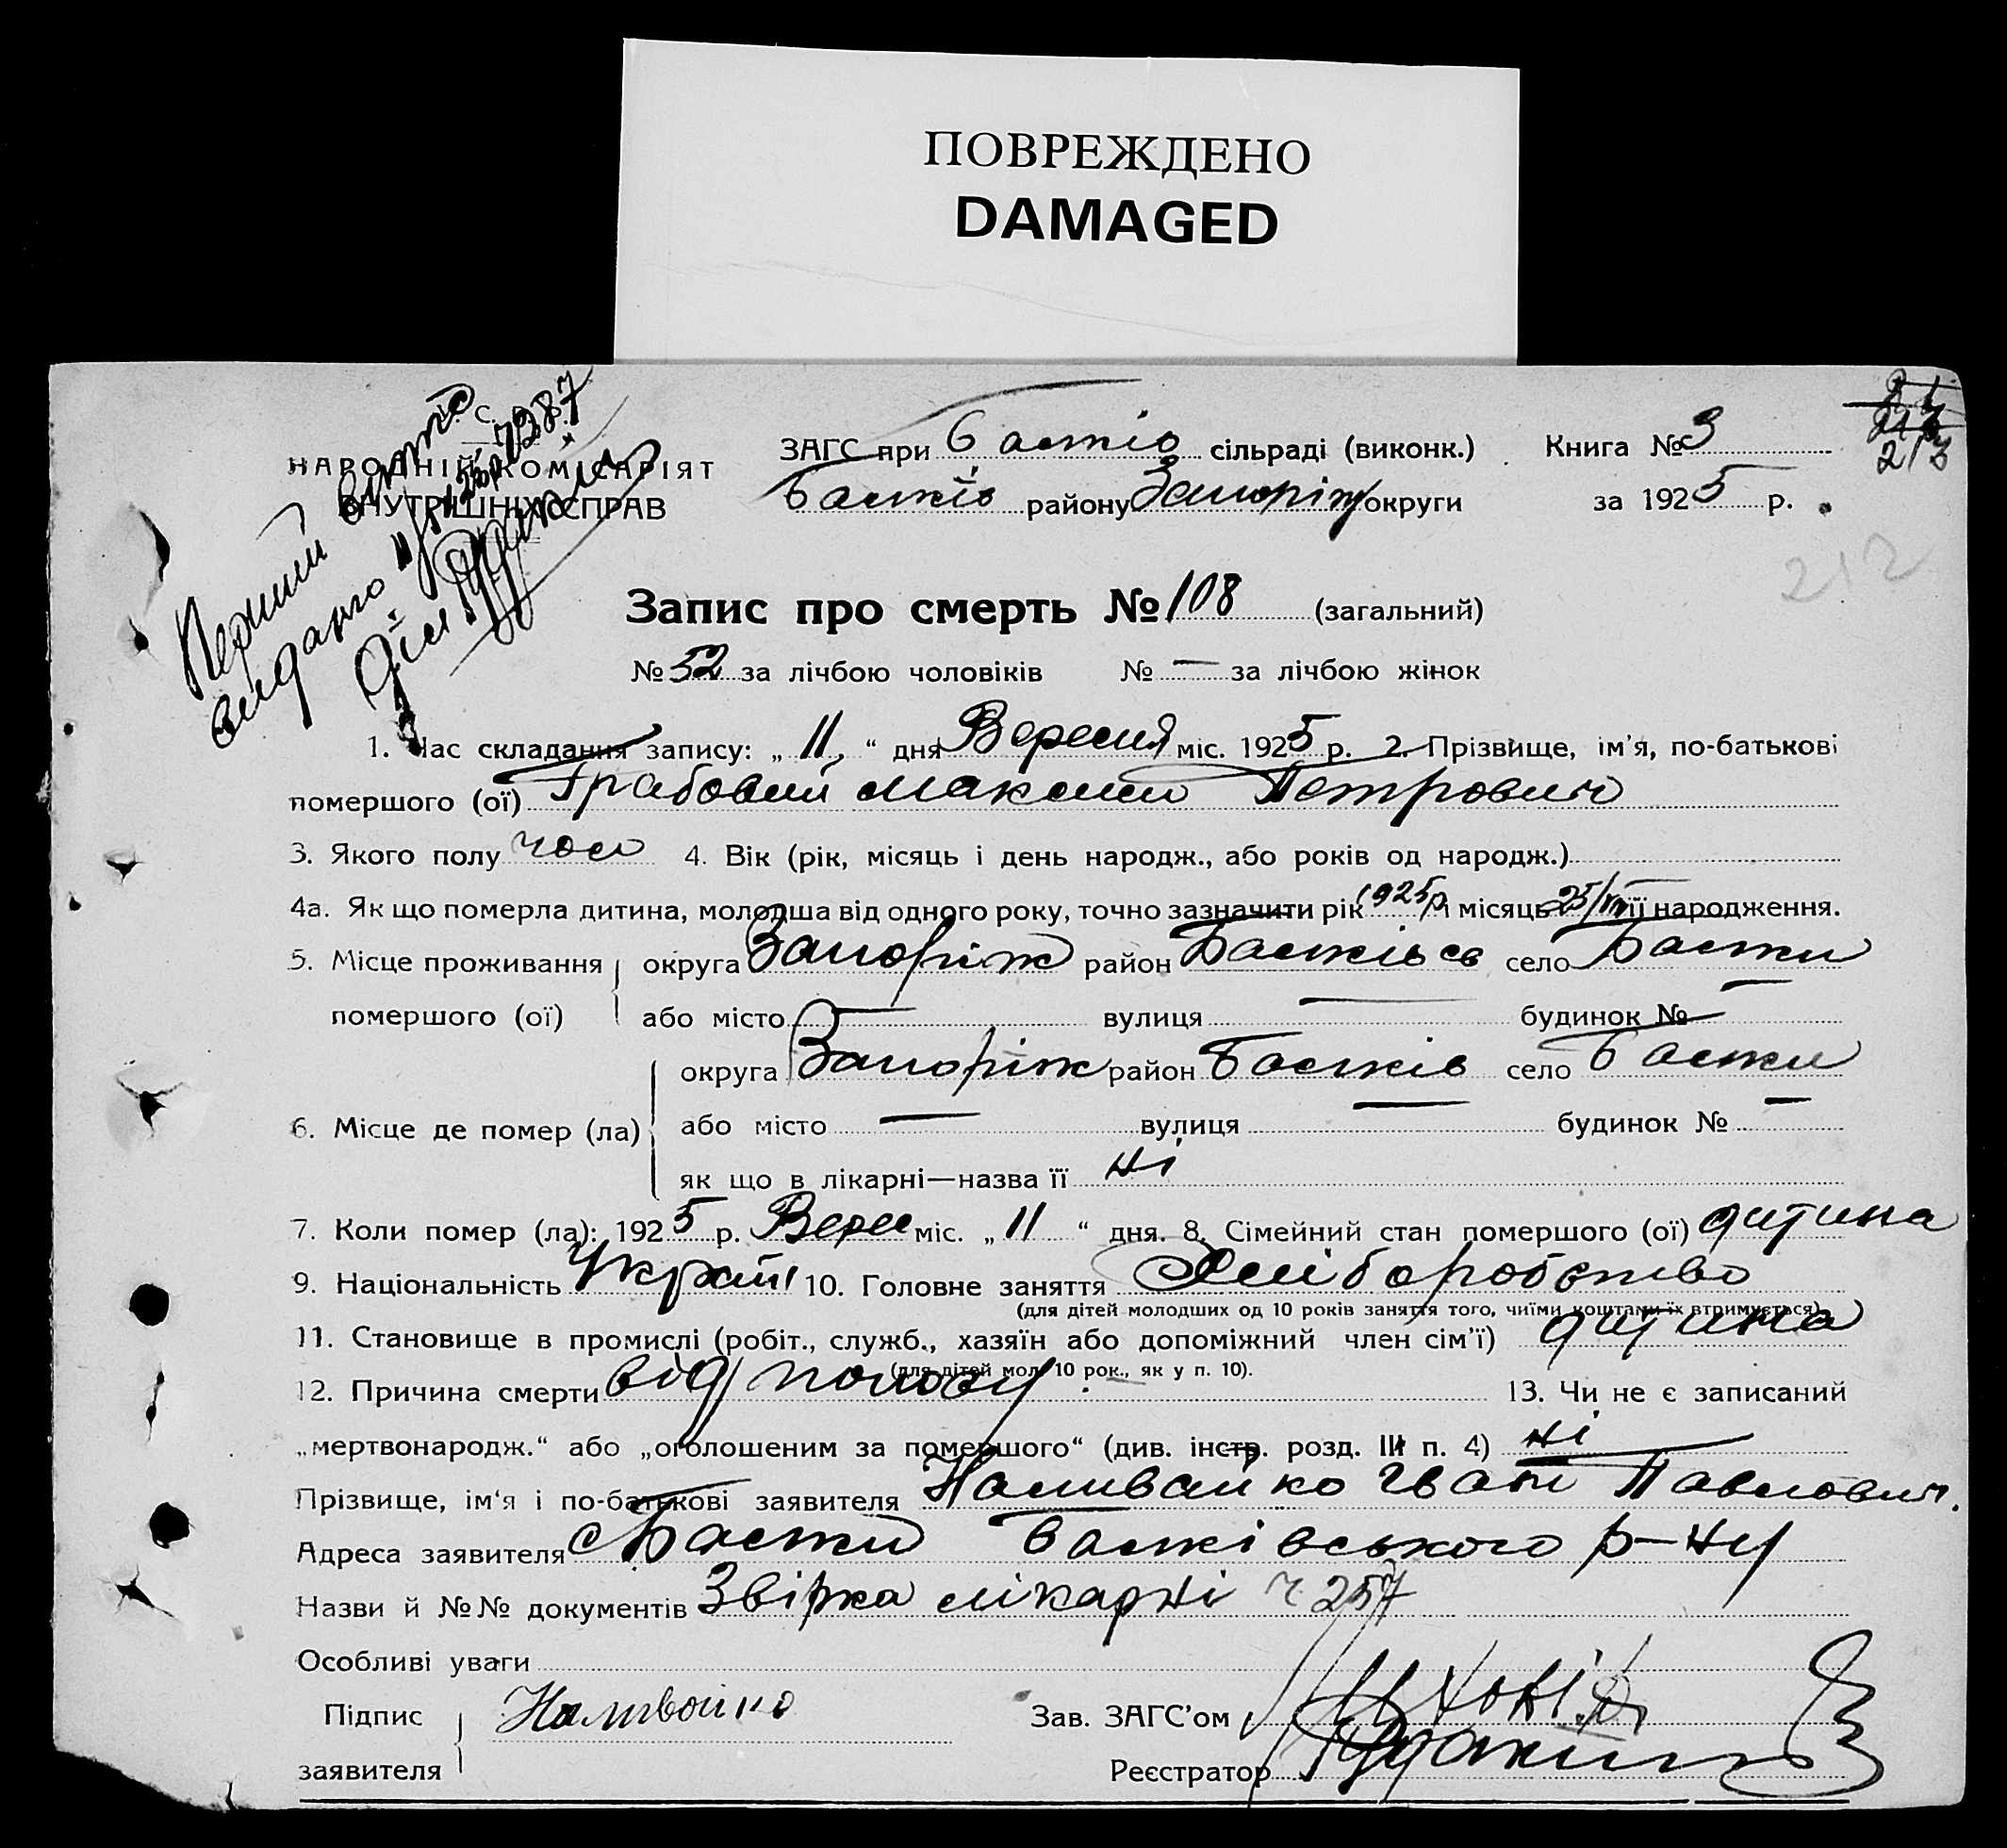 ПОВРЕЖДЕНО
DAMAGED
Перший витяг
видано 11/IX 25р. 7387
НАРОДНІЙ КОМІСАРІЯТ
ВНУТРІШНІХ СПРАВ
ЗАГС при сільраді (виконк.) Книга № 3
району Запоріж округи за 1925 р.
213
212
Запис про смерть № 108 (загальний)
№ 52 за лічбою чоловіків № — за лічбою жінок
1. Час складання запису: „ 11 “ дня Вересня міс. 1925 р. 2. Прізвище, ім'я, по-батькові
помершого (ої) Грабовий Максим Петрович
3. Якого полу чол 4. Вік (рік, місяць і день народж., або років од народж.)
4а. Як що померла дитина, молодша від одного року, точно зазначити рік 1925р і місяць 25/VII її народження.
5. Місце проживання округа Запоріж район село
помершого (ої) або місто — вулиця — будинок № —
округа Запоріж район село
6. Місце де помер (ла) або місто — вулиця — будинок № —
як що в лікарні—назва її ні
7. Коли помер (ла): 1925 р. Верес міс. „ 11 “ дня. 8. Сімейний стан помершого (ої) дитина
9. Національність Україн 10. Головне заняття Хліборобство
(для дітей молодших од 10 років заняття того, чиїми коштами їх втримується)
11. Становище в промислі (робіт., служб., хазяїн або допоміжний член сім'ї) дитина
(для дітей мол. 10 рок., як у п. 10).
12. Причина смерти від поносу 13. Чи не є записаний
„мертвонародж.“ або „оголошеним за помершого“ (див. інстр. розд. III п. 4) ні
Прізвище, ім'я і по-батькові заявителя Наливайко Іван Павлович.
Адреса заявителя р-ну
Назви й №№ документів Звірка лікарні ч 257
Особливі уваги
Підпис Наливайко Зав. ЗАГС'ом
заявителя Реєстратор